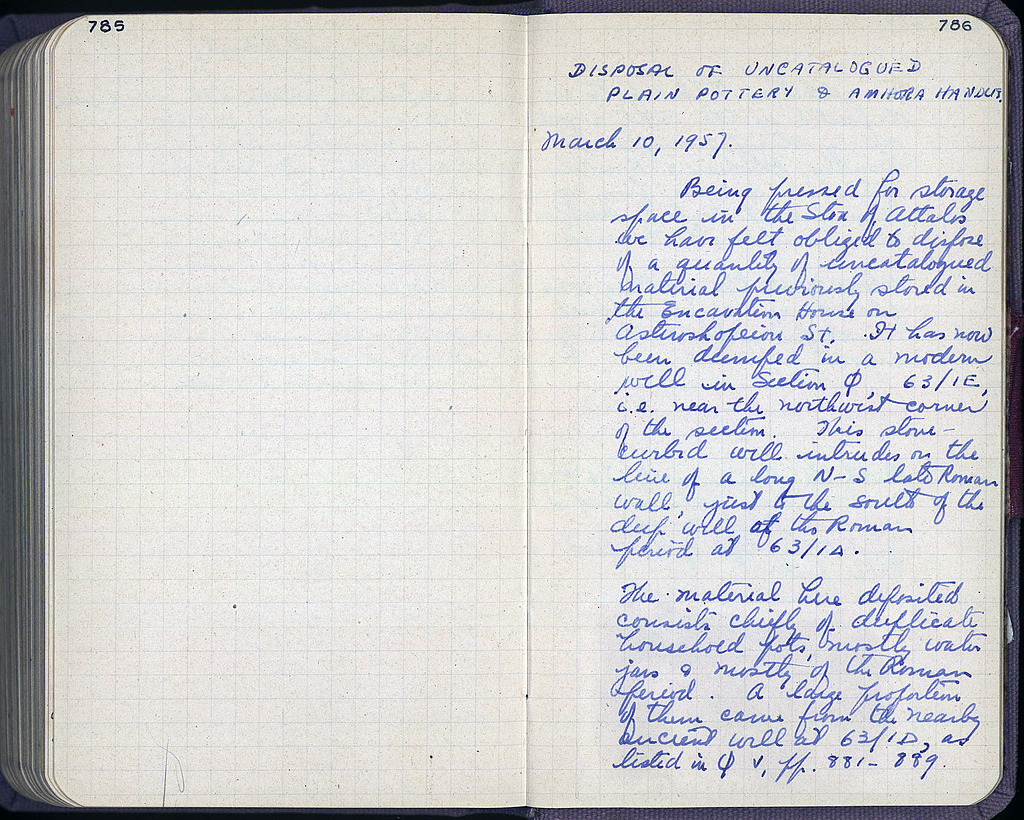 785
786
DISPOSAL OF UNCATALOGUED
PLAIN POTTERY & AMHORA HANDLES.
March 10, 1957.
Being pressed for storage
space in the Stoa of Attalos
we have felt obliged to dispose
of a quantity of uncatalogued
material previously stored in
the Excavation House on
Asteroskopeion St. It has now
been dumped in a modern
well in Section Φ, 63/1E,
i.e. near the northwest corner
of the section. This stone-
curbed well intrudes on the
line of a long N-S late Roman
wall, just to the south of the
deep well of the Roman
period at 63/1Δ.
The material here deposited
consists chiefly of duplicate
household pots, mostly water
jars & mostly of the Roman
period. A large proportion
of them came from the nearby
ancient well at 63/1D, as
listed in Φ V, pp. 881-889.